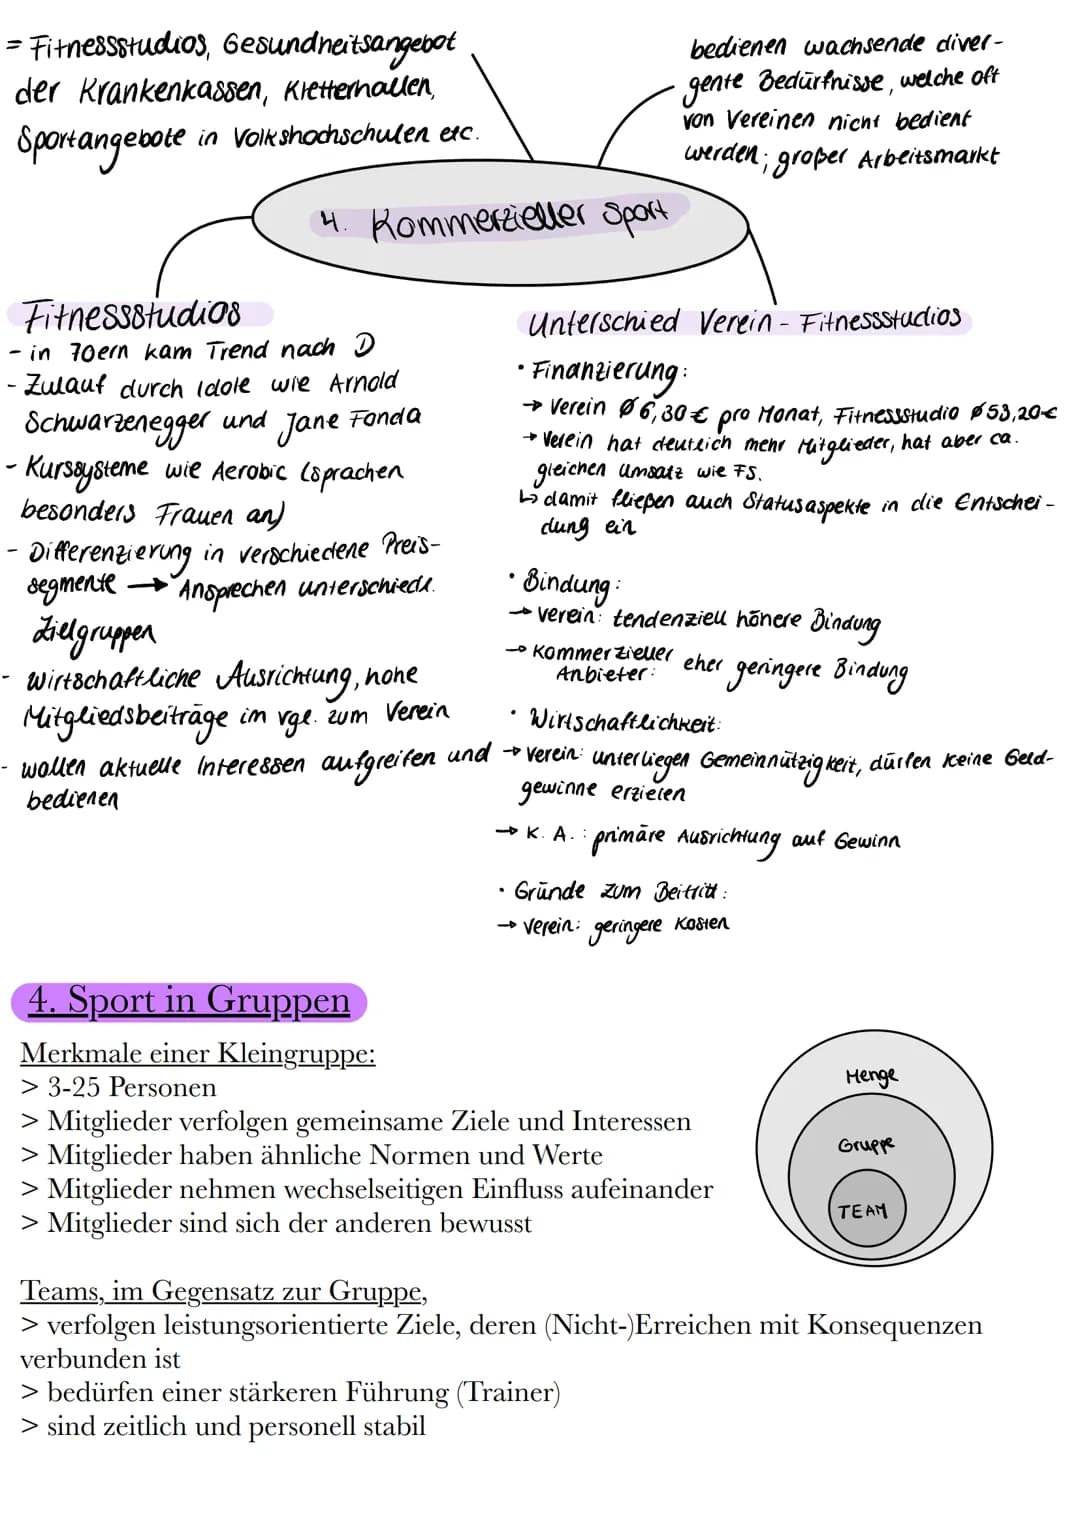 = Fitnessstudios, Gesundheitsangebot
der Krankenkassen, Kletterhallen,
Sportangebote in Volkshochschulen etc.
bedienen wachsende diver-
gente Bedürfnisse, welche oft
von Vereinen nicht bedient
werden; großer Arbeitsmarkt
4. Kommerzieller Sport
Fitnessstudios
- in 70ern kam Trend nach D
- Zulauf durch Idole wie Arnold
Schwarzenegger und Jane Fonda
- Kurssysteme wie Aerobic (sprachen
besonders Frauen an)
- Differenzierung in verschiedene Preis-
segmente → Ansprechen unterschiedl.
Zielgruppen
- wirtschaftliche Ausrichtung, hohe
Mitgliedsbeiträge im vgl. zum Verein
- wollen aktuelle Interessen aufgreifen und
bedienen
Unterschied Verein - Fitnessstudios
• Finanzierung:
→ Verein Ø 6,30 € pro Monat, Fitnessstudio Ø 53,20€
→ Verein hat deutlich mehr Mitglieder, hat aber ca.
gleichen Umsatz wie FS.
↳ damit fließen auch Statusaspekte in die Entschei-
dung ein
• Bindung:
→ Verein: tendenziell höhere Bindung
→ Kommerzieller Anbieter: eher geringere Bindung
• Wirtschaftlichkeit:
→ Verein: unterliegen Gemeinnützigkeit, dürfen keine Geld-
gewinne erzielen
→ K. A. : primäre Ausrichtung auf Gewinn
• Gründe zum Beitritt:
→ Verein: geringere Kosten
4. Sport in Gruppen
Merkmale einer Kleingruppe:
> 3-25 Personen
> Mitglieder verfolgen gemeinsame Ziele und Interessen
> Mitglieder haben ähnliche Normen und Werte
> Mitglieder nehmen wechselseitigen Einfluss aufeinander
> Mitglieder sind sich der anderen bewusst
Menge
Gruppe
TEAM
Teams, im Gegensatz zur Gruppe,
> verfolgen leistungsorientierte Ziele, deren (Nicht-)Erreichen mit Konsequenzen
verbunden ist
> bedürfen einer stärkeren Führung (Trainer)
> sind zeitlich und personell stabil